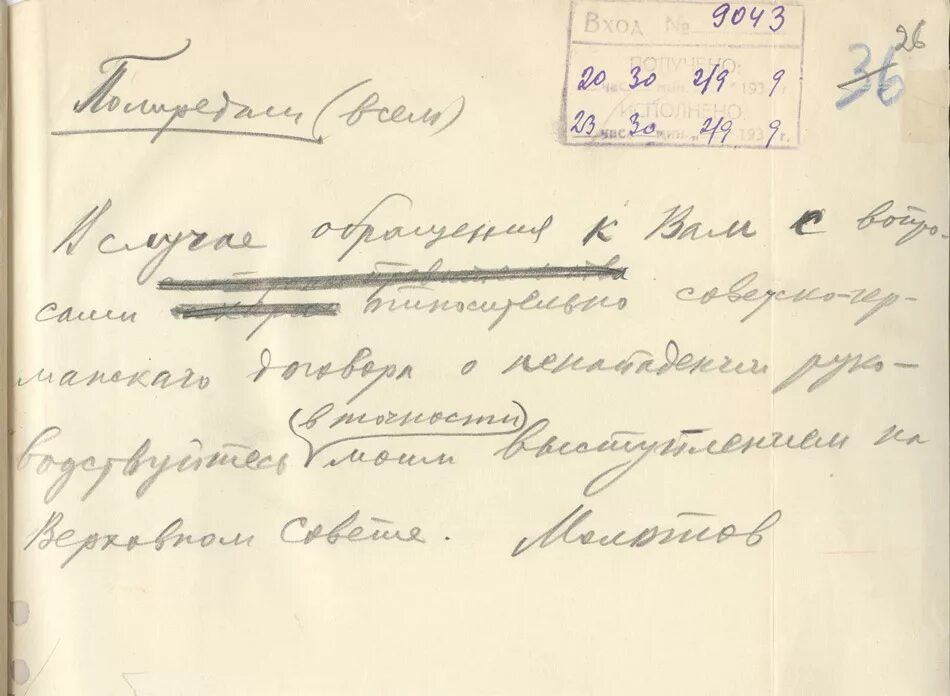 Вход № 9043
26
36
ПОЛУЧЕНО:
20 час. 30 мин. „2/9" 1939 г.
ИСПОЛНЕНО
23 час. 30 мин. „2/9" 1939 г.
Полпредам (всем)
В случае обращения к Вам с вопро-
сами относительно советско-гер-
манскаго договора о ненападении руко-
(в точности)
водствуйтесь моим выступлением на
Верховном Совете. Молотов